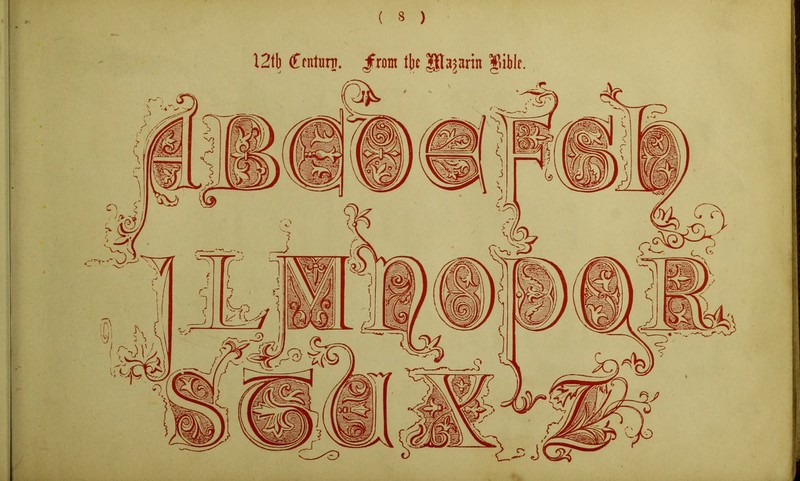 ( 8 )
12th Century. From the Mazarin Bible.
A B C D E F G H
I L M N O P Q R
S T U X Z